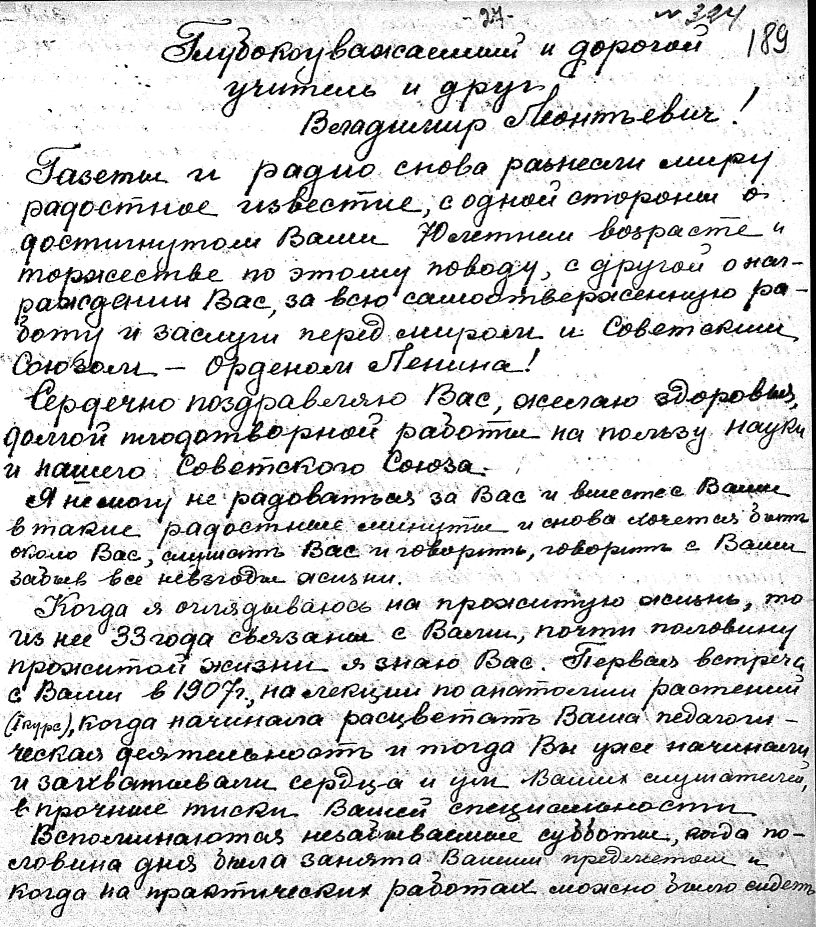 -27-
№ 324
189
Глубокоуважаемый и дорогой
учитель и друг
Владимир Леонтьевич!
Газеты и радио снова разнесли миру
радостное известие, с одной стороны о
достигнутом Вами 70летнем возрасте и
торжестве по этому поводу, с другой о наг-
раждении Вас, за всю самоотверженную ра-
боту и заслуги перед миром и Советским
Союзом – Орденом Ленина!
Сердечно поздравляю Вас, желаю здоровья,
долгой плодотворной работы на пользу науки
и нашего Советского Союза.
Я не могу не радоваться за Вас и вместе с Вами
в такие радостные минуты и снова хочется быть
около Вас, слушать Вас и говорить, говорить с Вами
забыв все невзгоды жизни.
Когда я оглядываюсь на прожитую жизнь, то
из нее 33 года связаны с Вами, почти половину
прожитой жизни я знаю Вас. Первая встреча
с Вами в 1907г., на лекции по анатомии растений
(I курс), когда начинала расцветать Ваша педагоги-
ческая деятельность и тогда Вы уже начинали
и захватывали сердца и ум Ваших слушателей,
в прочные тиски Вашей специальности
Вспоминаются незабываемые субботы, когда по-
ловина дня была занята Вашим предметом и
когда на практических работах можно было сидеть